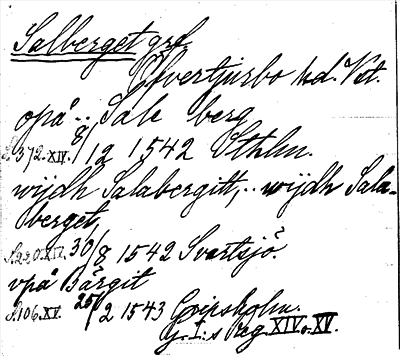 Salberget grf.
Öfvertjurbo hd. Vstl.
opå .. Sale berg
S.372.XIV. 8/12 1542 Sthlm.
wijdh Salabergitt, .. wijdh Sala-
berget,
S.220.XIV. 30/8 1542 Svartsjö.
vpå Bärgit
S.106.XV. 25/2 1543 Gripsholm.
G. I:s Reg. XIV o. XV.